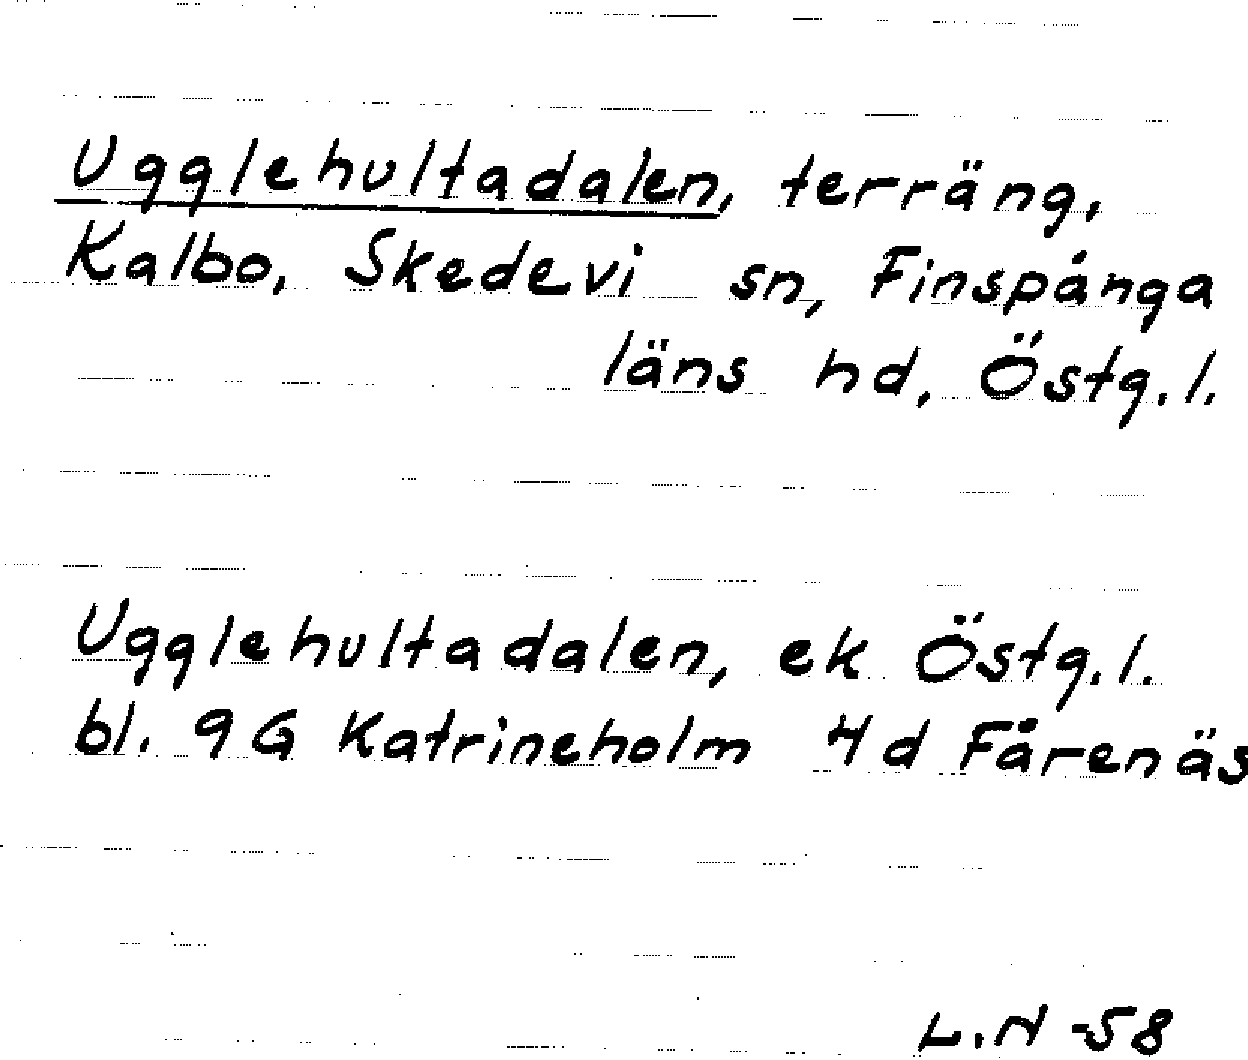 Ugglehultadalen, terräng,
Kalbo, Skedevi sn, Finspånga
läns hd, Östg.l.
Ugglehultadalen, ek Östg.l.
bl. 9G Katrineholm 4d Fårenäs
L.N -58